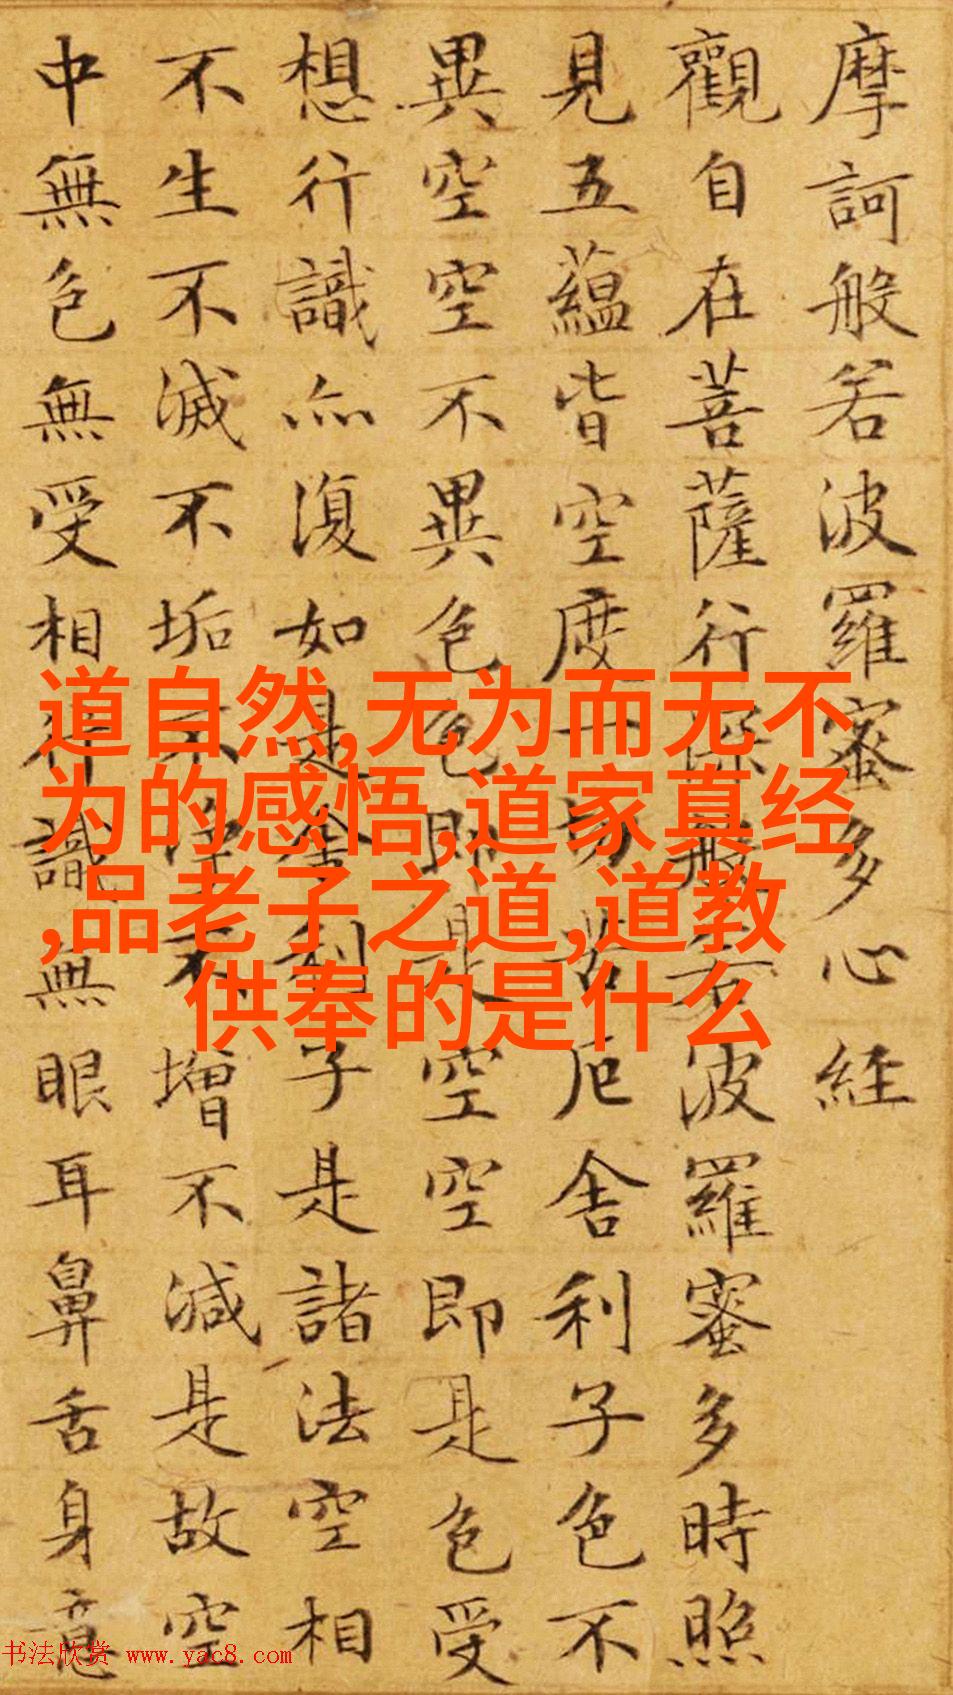 摩訶般若波羅蜜多心經
觀自在菩薩行深般若波羅蜜多時照
見五蘊皆空度一切苦厄舍利子色不
異空空不異色色即是空空即是色受
想行識亦復如是舍利子是諸法空相
不生不滅不垢不淨不增不減是故空
中無色無受相行識無眼耳鼻舌身意
道自然,无为而无不
为的感悟,道家真经
,品老子之道,道教
供奉的是什么
书法欣赏 www.yac8.com